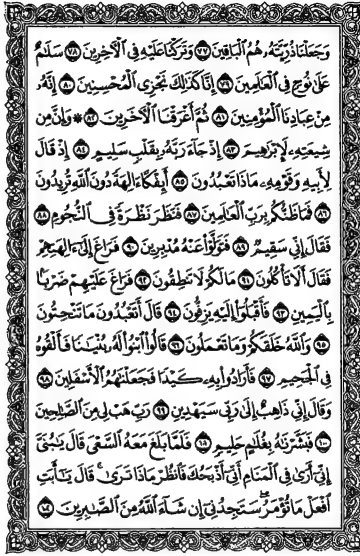 وَجَعَلْنَا ذُرِّيَّتَهُۥ هُمُ ٱلْبَاقِينَ ٧٧ وَتَرَكْنَا عَلَيْهِ فِى ٱلْآخِرِينَ ٧٨ سَلَٰمٌ
عَلَىٰ نُوحٍ فِى ٱلْعَٰلَمِينَ ٧٩ إِنَّا كَذَٰلِكَ نَجْزِى ٱلْمُحْسِنِينَ ٨٠ إِنَّهُۥ
مِنْ عِبَادِنَا ٱلْمُؤْمِنِينَ ٨١ ثُمَّ أَغْرَقْنَا ٱلْآخَرِينَ ٨٢ ۞ وَإِنَّ مِن
شِيعَتِهِۦ لَإِبْرَٰهِيمَ ٨٣ إِذْ جَآءَ رَبَّهُۥ بِقَلْبٍ سَلِيمٍ ٨٤ إِذْ قَالَ
لِأَبِيهِ وَقَوْمِهِۦ مَاذَا تَعْبُدُونَ ٨٥ أَئِفْكًا ءَالِهَةً دُونَ ٱللَّهِ تُرِيدُونَ
٨٦ فَمَا ظَنُّكُم بِرَبِّ ٱلْعَٰلَمِينَ ٨٧ فَنَظَرَ نَظْرَةً فِى ٱلنُّجُومِ ٨٨
فَقَالَ إِنِّى سَقِيمٌ ٨٩ فَتَوَلَّوْا۟ عَنْهُ مُدْبِرِينَ ٩٠ فَرَاغَ إِلَىٰٓ ءَالِهَتِهِمْ
فَقَالَ أَلَا تَأْكُلُونَ ٩١ مَا لَكُمْ لَا تَنطِقُونَ ٩٢ فَرَاغَ عَلَيْهِمْ ضَرْبًۢا
بِٱلْيَمِينِ ٩٣ فَأَقْبَلُوٓا۟ إِلَيْهِ يَزِفُّونَ ٩٤ قَالَ أَتَعْبُدُونَ مَا تَنْحِتُونَ
٩٥ وَٱللَّهُ خَلَقَكُمْ وَمَا تَعْمَلُونَ ٩٦ قَالُوا۟ ٱبْنُوا۟ لَهُۥ بُنْيَٰنًا فَأَلْقُوهُ
فِى ٱلْجَحِيمِ ٩٧ فَأَرَادُوا۟ بِهِۦ كَيْدًا فَجَعَلْنَٰهُمُ ٱلْأَسْفَلِينَ ٩٨
وَقَالَ إِنِّى ذَاهِبٌ إِلَىٰ رَبِّى سَيَهْدِينِ ٩٩ رَبِّ هَبْ لِى مِنَ ٱلصَّٰلِحِينَ
١٠٠ فَبَشَّرْنَٰهُ بِغُلَٰمٍ حَلِيمٍ ١٠١ فَلَمَّا بَلَغَ مَعَهُ ٱلسَّعْىَ قَالَ يَٰبُنَىَّ
إِنِّىٓ أَرَىٰ فِى ٱلْمَنَامِ أَنِّىٓ أَذْبَحُكَ فَٱنظُرْ مَاذَا تَرَىٰ ۚ قَالَ يَٰٓأَبَتِ
ٱفْعَلْ مَا تُؤْمَرُ ۖ سَتَجِدُنِىٓ إِن شَآءَ ٱللَّهُ مِنَ ٱلصَّٰبِرِينَ ١٠٢